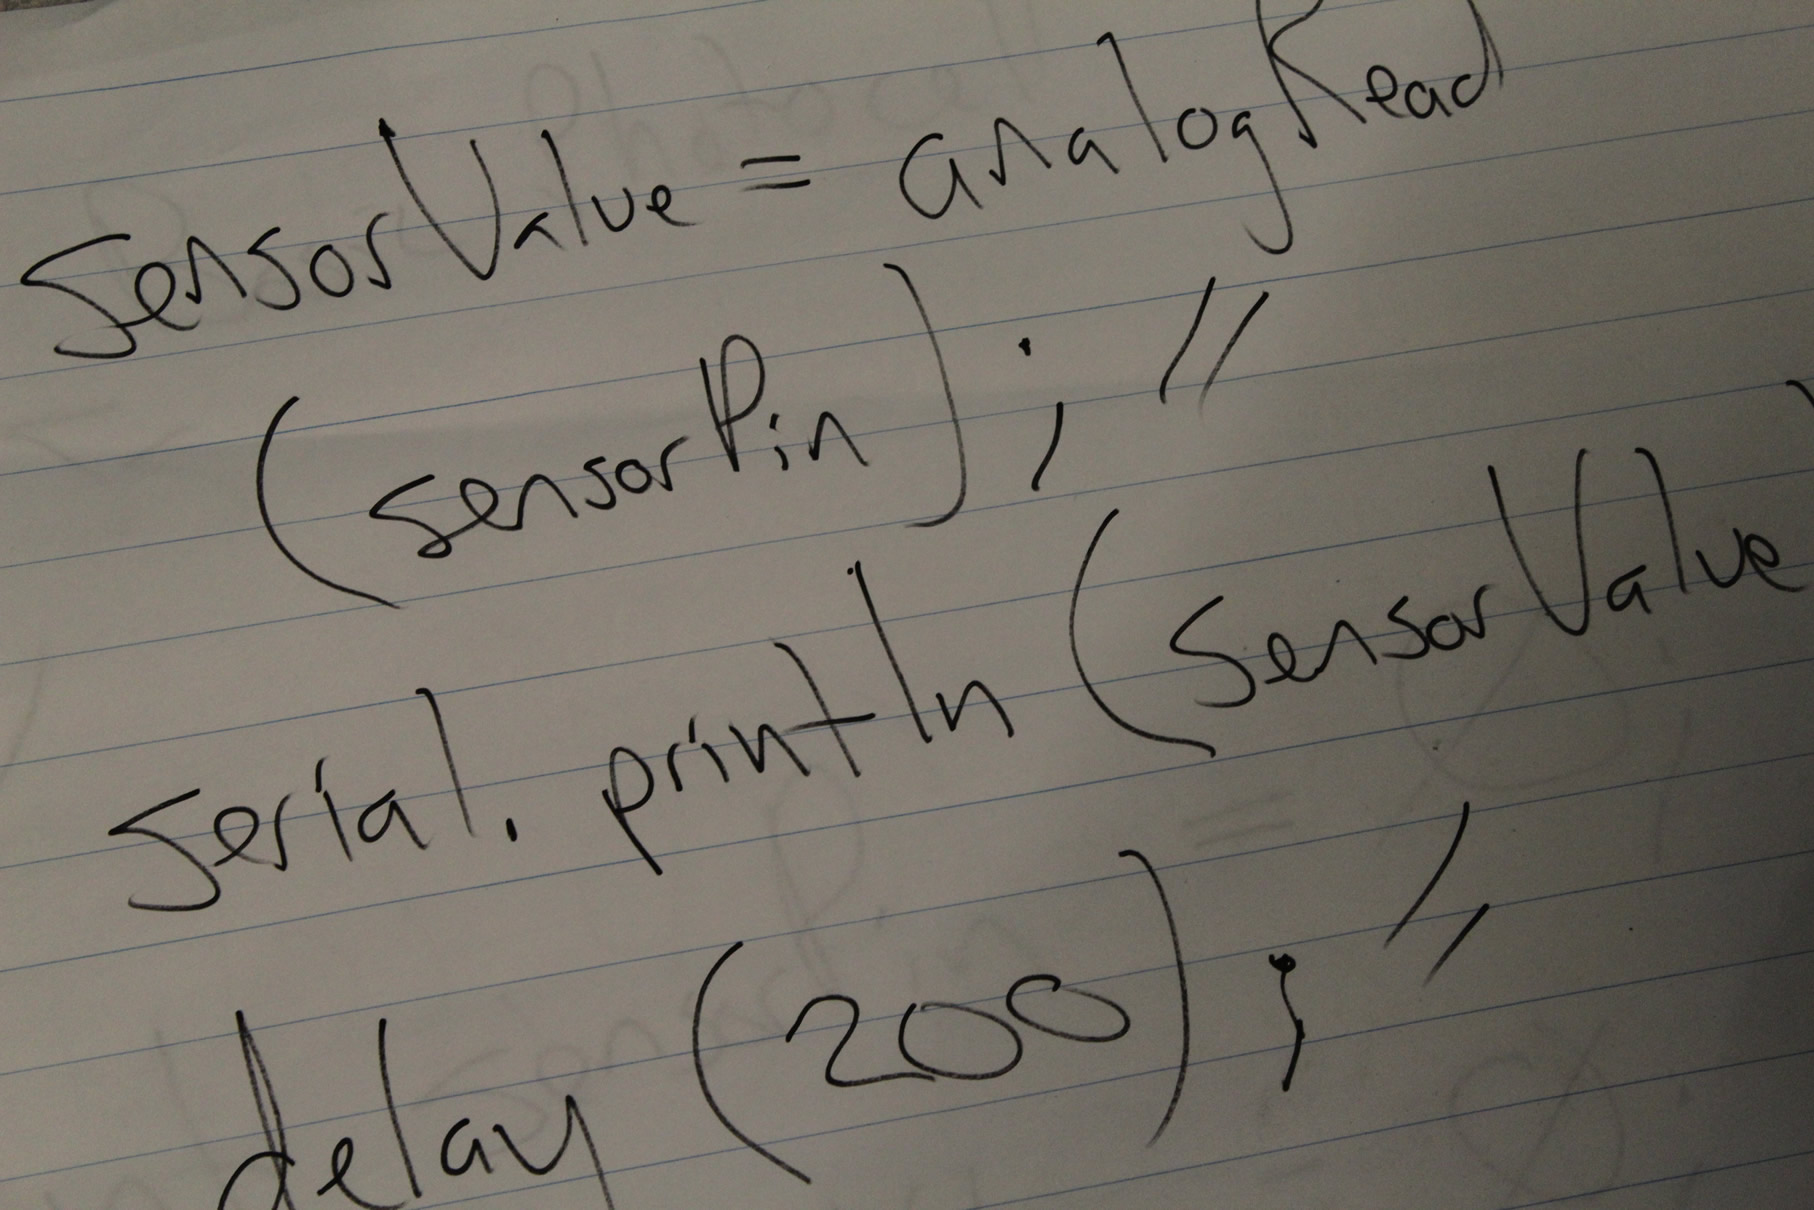 sensorValue = analogRead
(sensorPin); //
serial.println (sensorValue)
delay (200); //